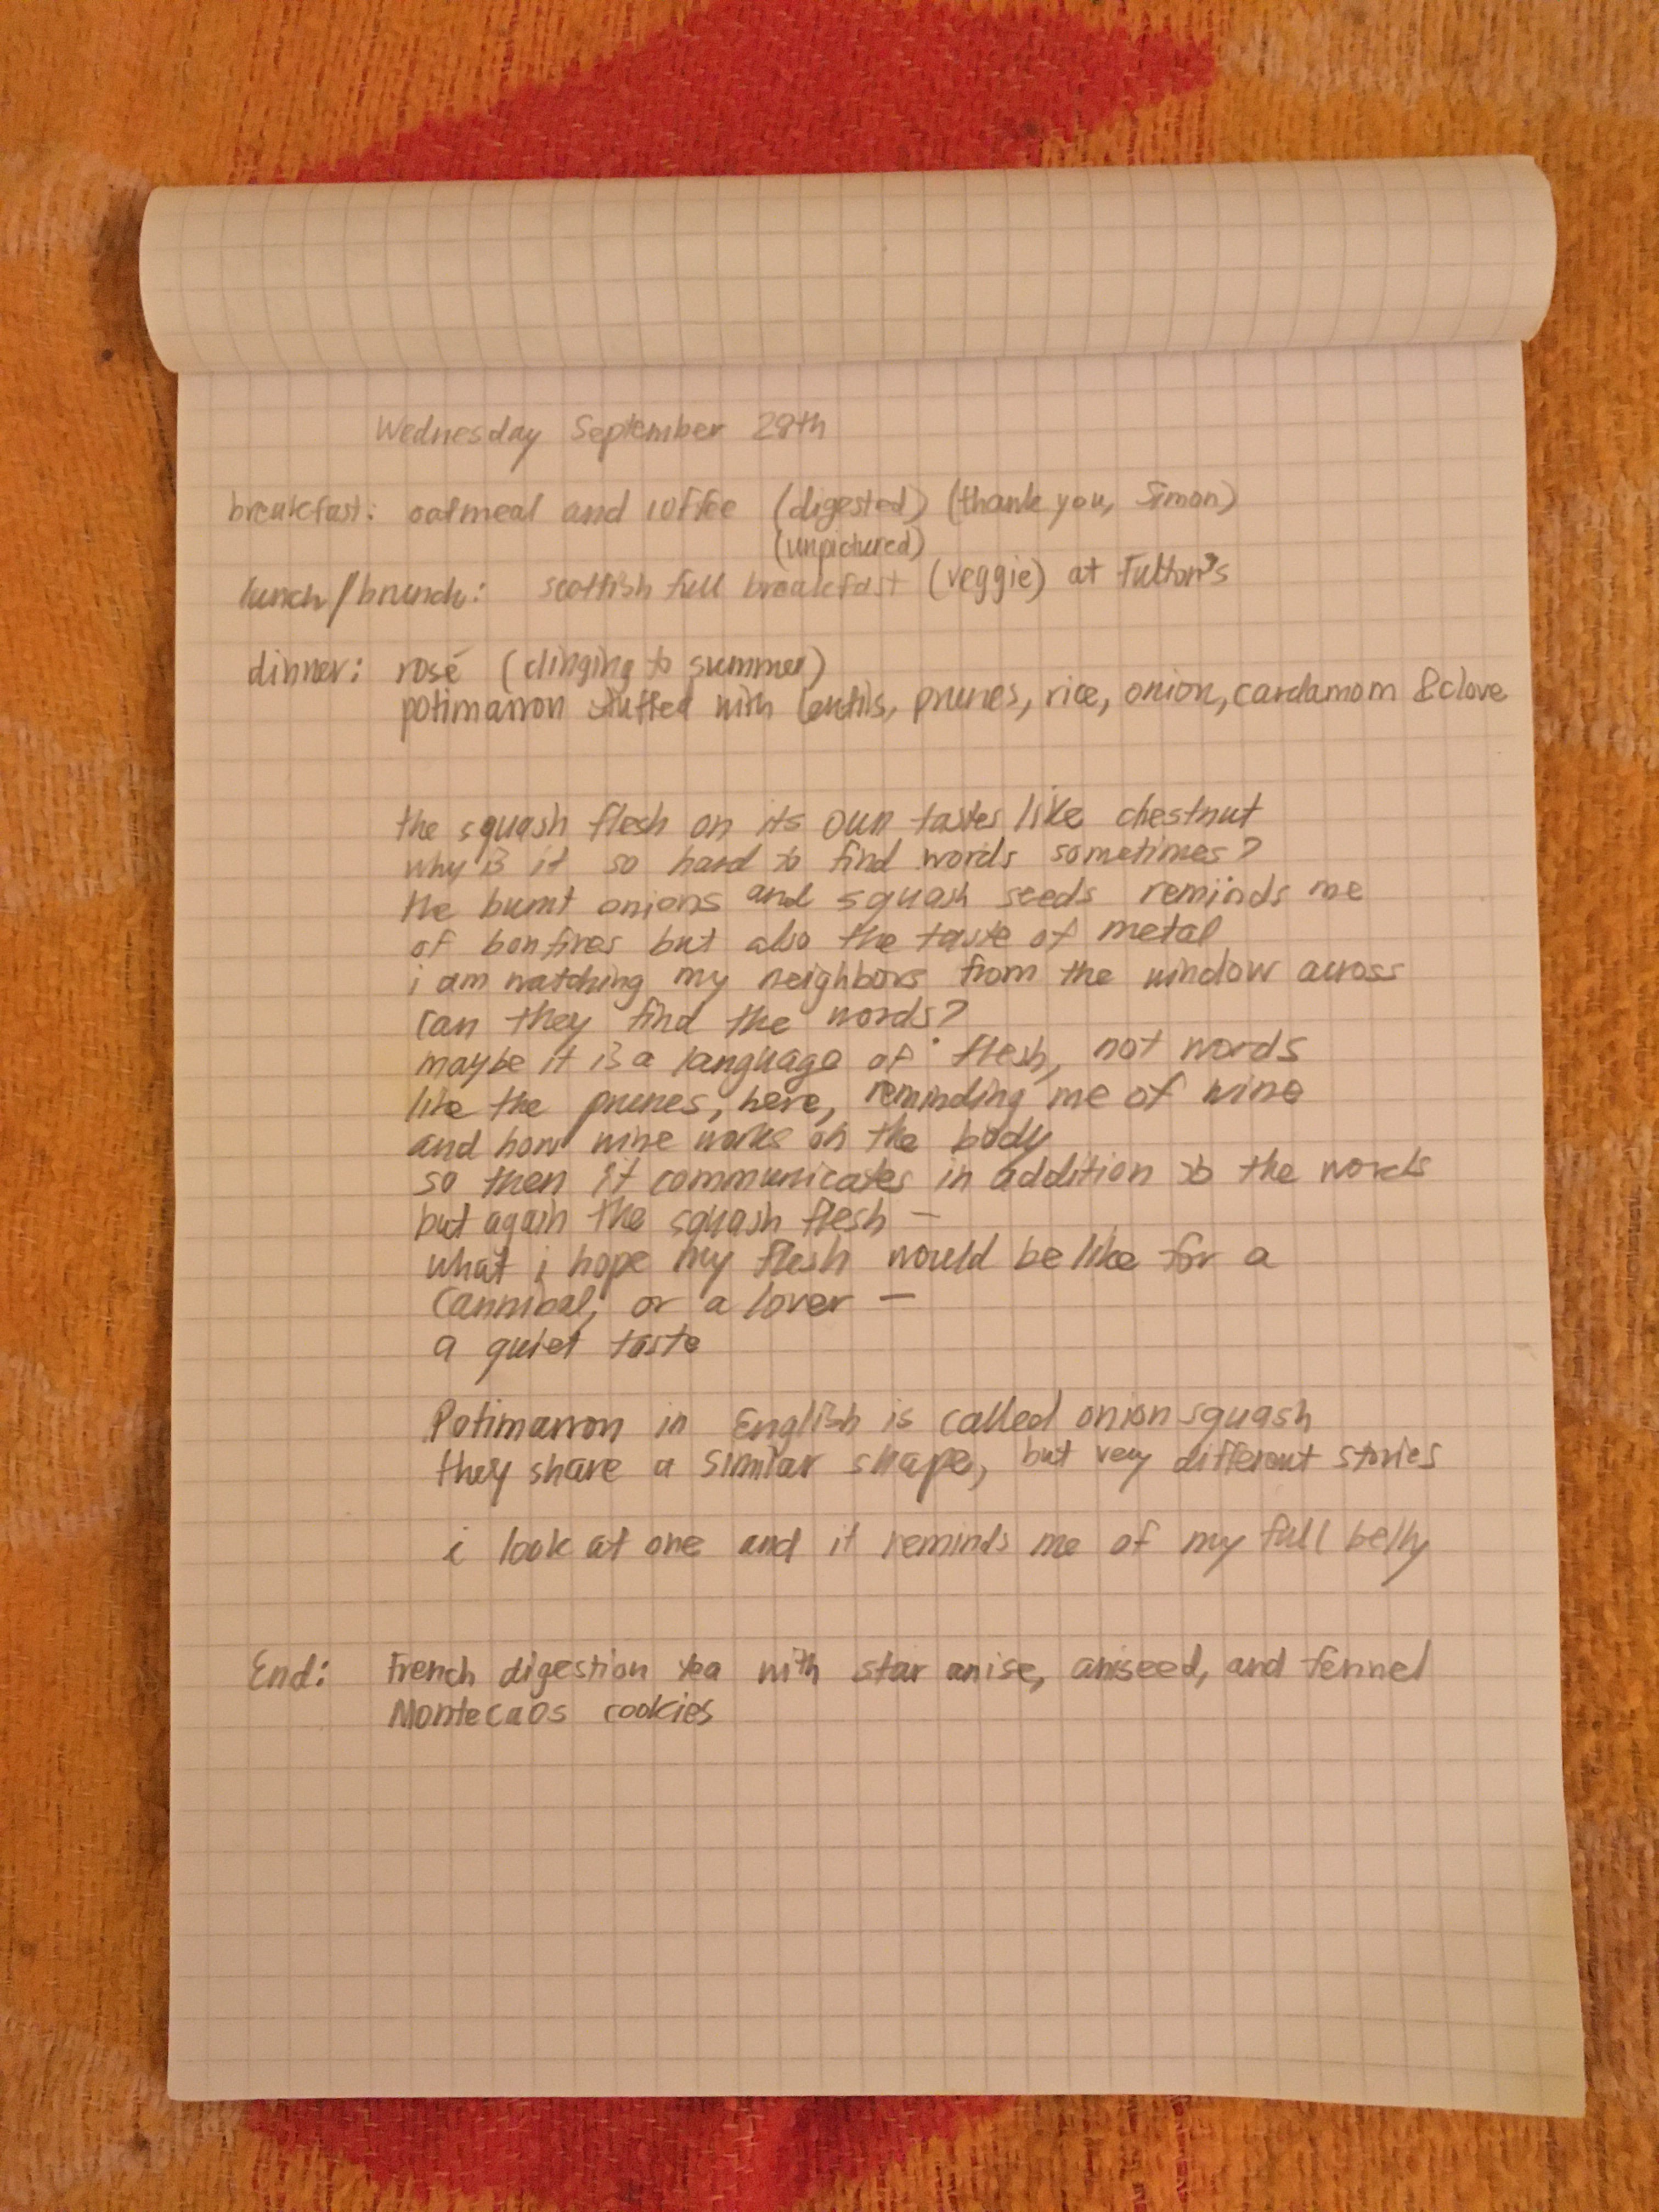 Wednesday September 28th
breakfast: oatmeal and coffee (digested) (thank you, Simon)
(unpictured)
lunch/brunch: scottish full breakfast (veggie) at Fulton's
dinner: rosé (clinging to summer)
potimarron stuffed with lentils, prunes, rice, onion, cardamom & clove
the squash flesh on its own tastes like chestnut
why is it so hard to find words sometimes?
the burnt onions and squash seeds reminds me
of bonfires but also the taste of metal
i am watching my neighbors from the window across
can they find the words?
maybe it is a language of flesh, not words
like the prunes, here, reminding me of wine
and how wine works on the body
so then it communicates in addition to the words
but again the squash flesh –
what i hope my flesh would be like for a
cannibal, or a lover –
a quiet taste
Potimarron in English is called onion squash
they share a similar shape, but very different stories
i look at one and it reminds me of my full belly
End: French digestion tea with star anise, aniseed, and fennel
Montecaos cookies